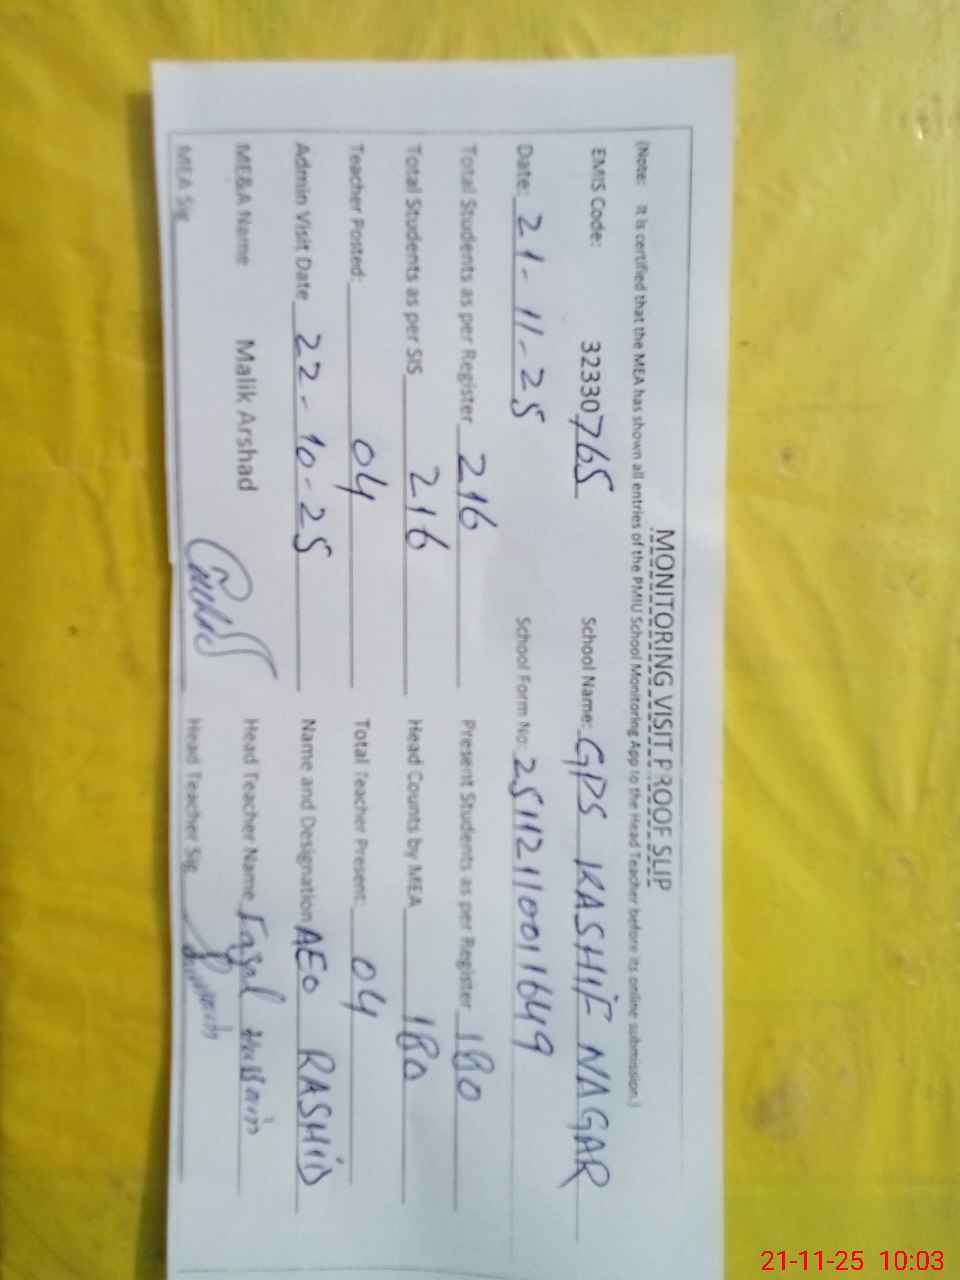 MONITORING VISIT PROOF SLIP
(Note: It is certified that the MEA has shown all entries of the PMIU School Monitoring App to the Head Teacher before its online submission.)
EMIS Code: 32330765 School Name: GPS KASHIF NAGAR
Date: 21-11-25 School Form No: 251121100111649
Total Students as per Register 216 Present Students as per Register 180
Total Students as per SIS 216 Head Counts by MEA 180
Teacher Posted: 04 Total Teacher Present: 04
Admin Visit Date 22-10-25 Name and Designation AEO RASHID
ME&A Name Malik Arshad Head Teacher Name Fazal Hussain
MEA Sig Head Teacher Sig
21-11-25 10:03